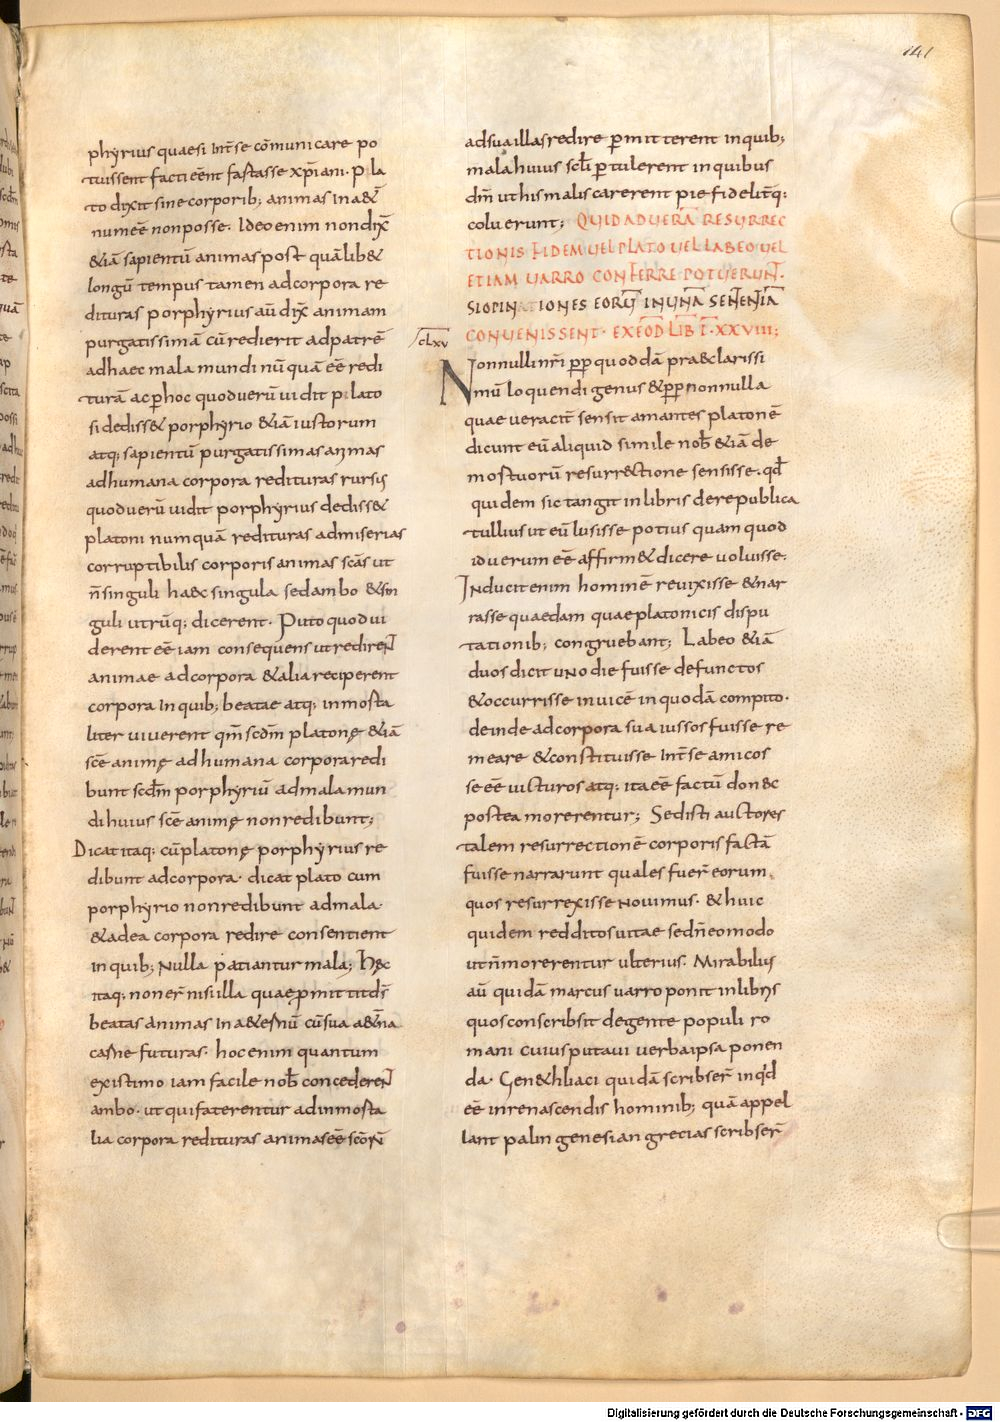 141
phyrius quaesi int̄se cōmunicare po
tuissent facti eēnt fastasse xp̄iani· p la
to dixit sine corporib; animas in a&
num eē non posse· Ideo enim non dix̄
&iā sapientū animas post quālib&
longū tempus tamen ad corpora re
dituras porphyrius aū dix̄ animam
purgatissimā cū redierit ad patrē
ad haec mala mundi nū quā eē redi
turā ac ꝑ hoc quod uerū uidit plato
si dediss& porphyrio &iā iustorum
atq; sapientū purgatissimas animas
ad humana corpora redituras rursus
quod uerū uidit porphyrius dediss&
platoni numquā redituras ad miserias
corruptibilis corporis animas scās ut
n̄ singuli haec singula sed ambo & sin
guli utrūq; dicerent· Puto quod ui
derent eē iam consequens ut redirent
animae ad corpora & alia reciperent
corpora in quib; beatae atq; inmosta
liter uiuerent qm̄ scdm̄ platonę &iā
scē animę ad humana corpora redi
bunt scdm̄ porphyriū ad mala mun
di huius scē animę non redibunt;
Dicat itaq; cū platonę porphyrius re
dibunt ad corpora· dicat plato cum
porphyrio non redibunt ad mala·
& ad ea corpora redire consentient
in quib; nulla patiantur mala; Hęc
itaq; non er̄ nisi illa quae ꝑmittit ds̄
beatas animas in a&ernū cū sua a&ērna
carne futuras· hoc enim quantum
existimo iam facile nob̄ concederent
ambo· ut qui faterentur ad inmosta
lia corpora redituras animas eē scōrū
ad sua illas redire ꝑmitterent in quib;
mala huius scl̄i ꝑtulerent in quibus
dm̄ ut his malis carerent pie fidelit̄q;
coluerunt; QUID AD UERĀ RESURREC
TIONIS FIDEM UEL PLATO UEL LABEO UEL
ETIAM UARRO CONFERRE POTUERUNT·
SI OPINATIONES EORŪ IN UNĀ SENTENTIĀ
CONUENISSENT· EX EOD̄ LIB T̄· XXVIII;
CLXV
Nonnulli nr̄i ꝓp quoddā praeclarissi
mū loquendi genus & ꝓp nonnulla
quae ueracit̄ sensit amantes platonē
dicunt eū aliquid simile nob̄ &iā de
mostuorū resurrectione sensisse· qd̄
quidem sic tangit in libris de republica
tullius ut eū lusisse potius quam quod
id uerum eē affirm& dicere uoluisse;
Inducit enim hominē reuixisse & nar
rasse quaedam quae platonicis dispu
tationib; congruebant; Labeo &iā
duos dicit uno die fuisse defunctos
& occurrisse inuicē in quodā compito·
deinde ad corpora sua iussos fuisse re
meare & constituisse int̄ se amicos
se eē uicturos atq; ita eē factū donec
postea morerentur; Sed isti auctores
talem resurrectionē corporis factā
fuisse narrarunt quales fuer̄ eorum
quos resurrexisse nouimus· & huic
quidem redditos uitae sed n̄ eo modo
ut n̄ morerentur ulterius· Mirabilius
aū quidā marcus uarro ponit in libris
quos conscribsit de gente populi ro
mani cuius putaui uerba ipsa ponen
da· Gen&hliaci quidā scribser̄ inqd
eē in renascendis hominib; quā appel
lant palin genesian grecias scribser̄
Digitalisierung gefördert durch die Deutsche Forschungsgemeinschaft - DFG